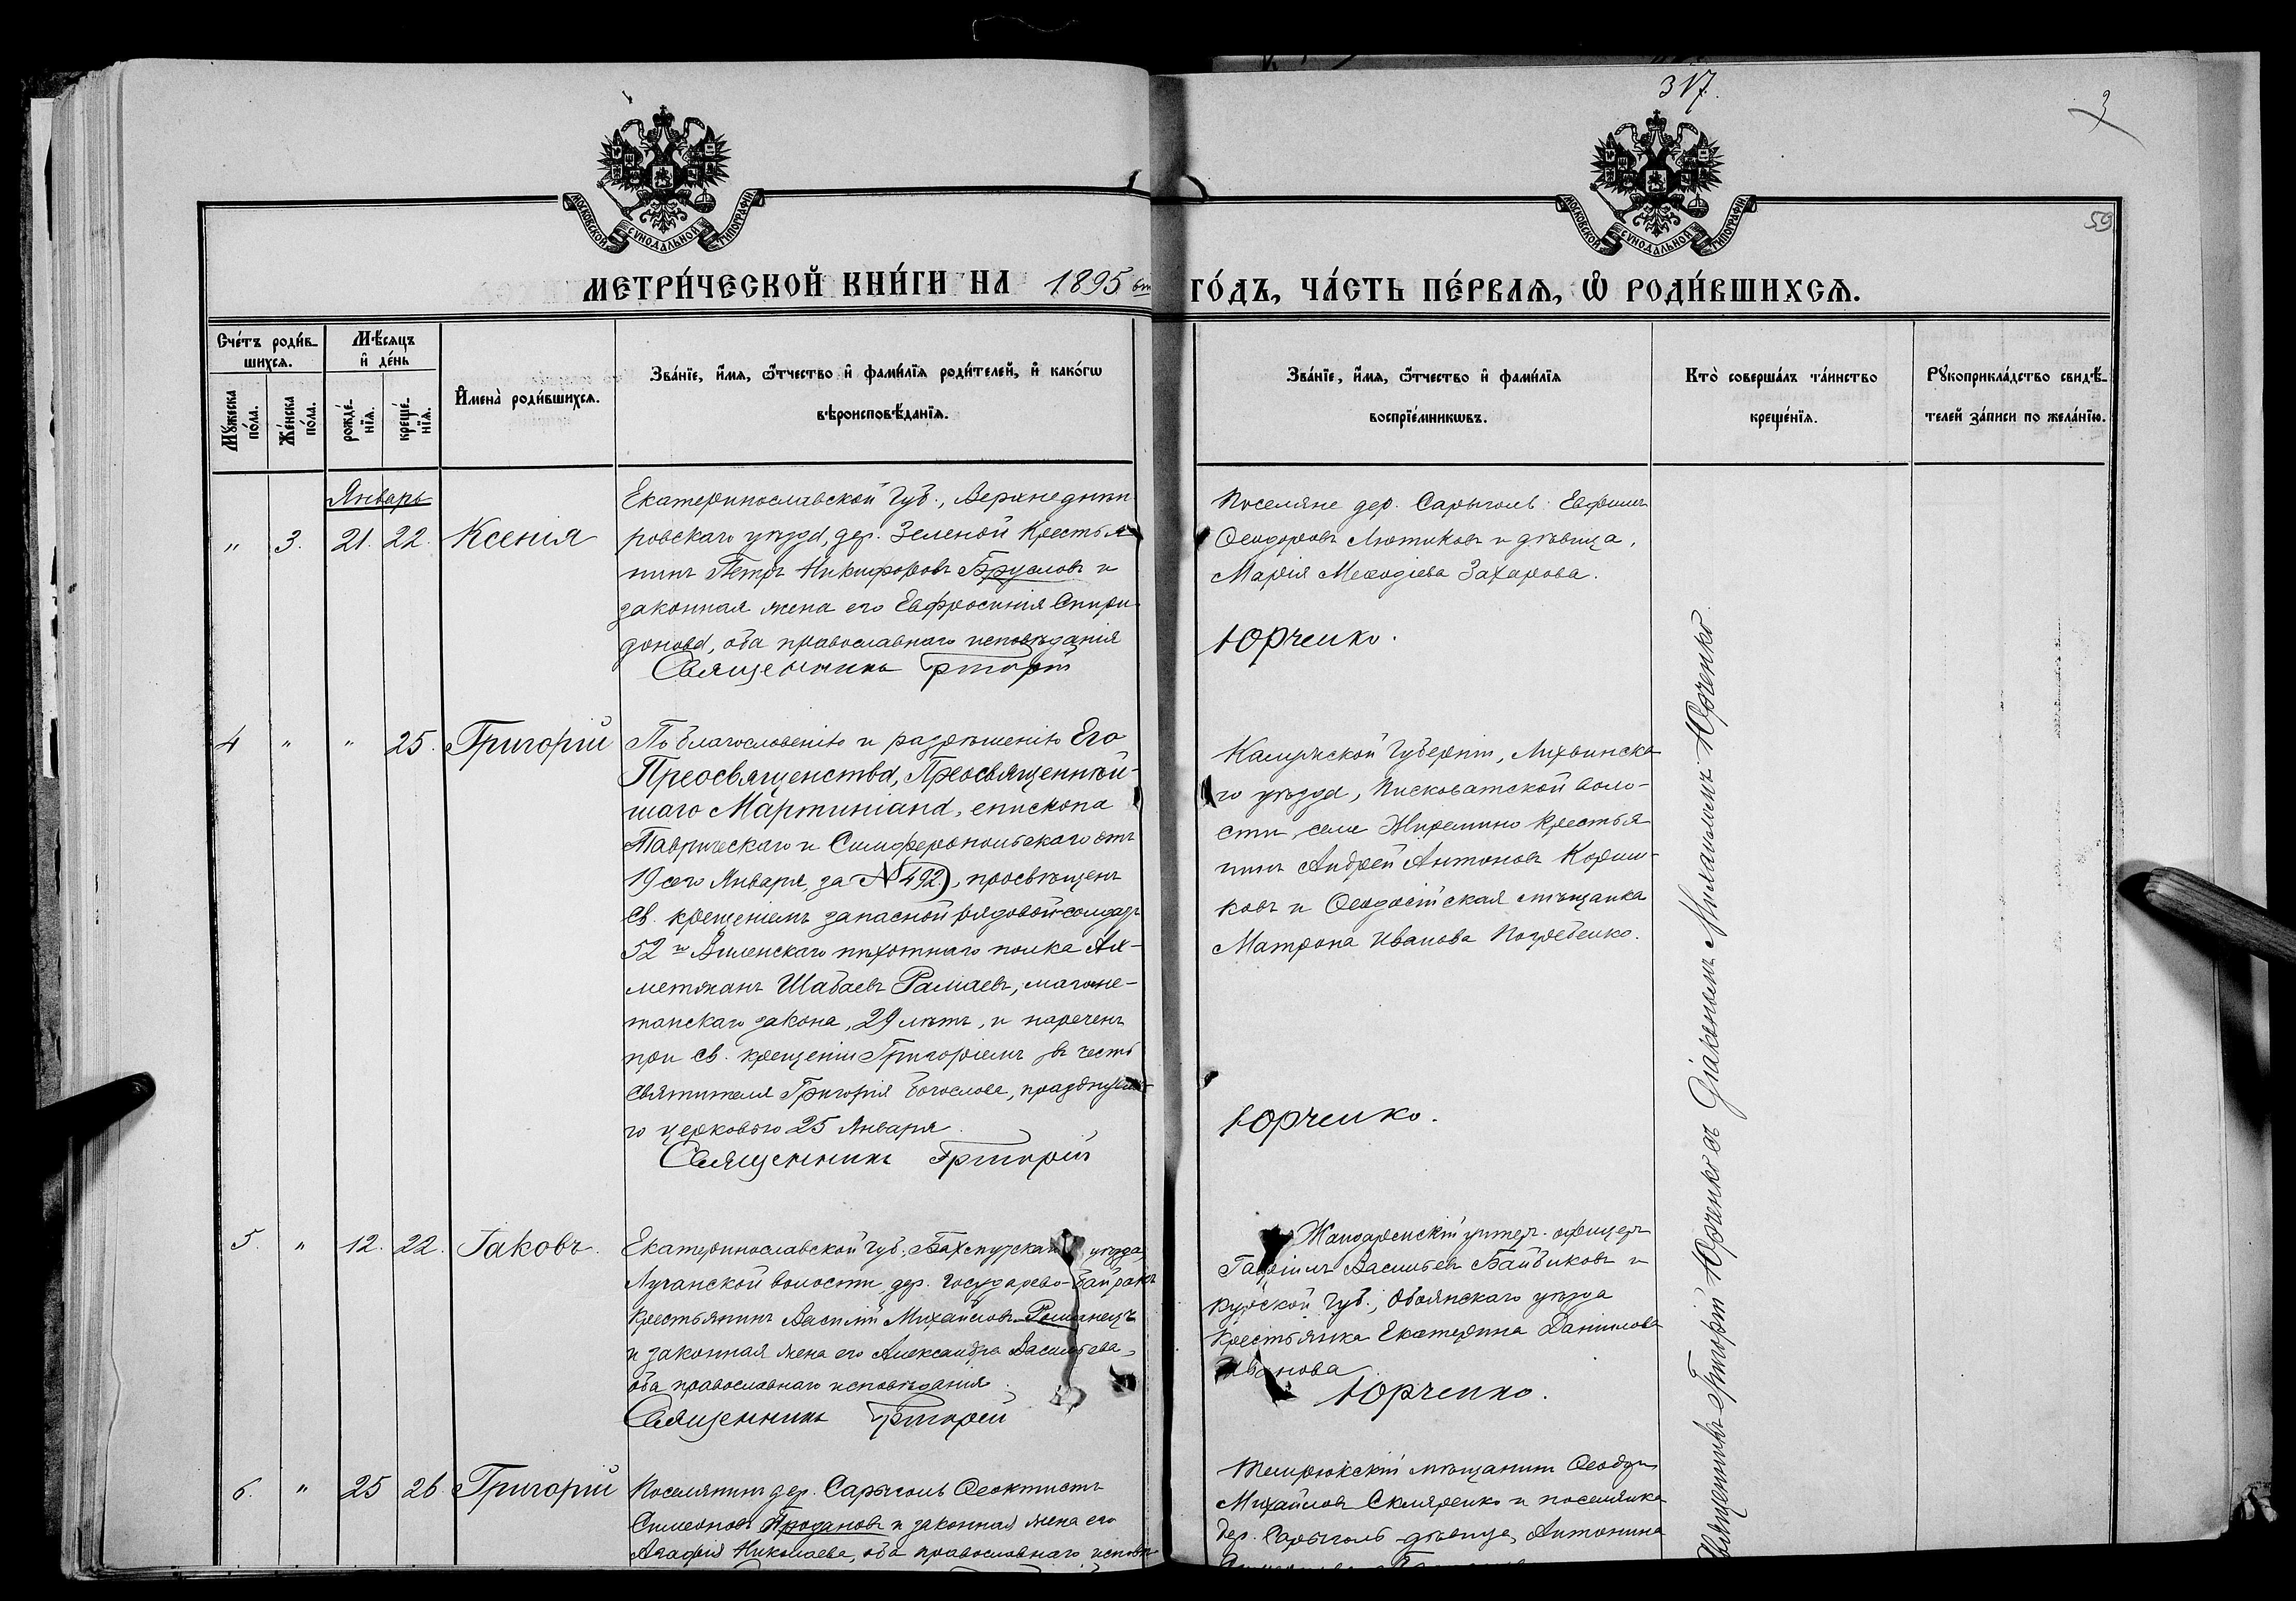 317.
3
59
МОСКОВСКОЙ СѴНОДАЛЬНОЙ ТИПОГРАФІИ
МОСКОВСКОЙ СѴНОДАЛЬНОЙ ТИПОГРАФІИ
МЕТРИ́ЧЕСКОЙ КНИ́ГИ НА 1895
ГО́ДЪ, ЧА́СТЬ ПЕ́РВАѦ, Ѡ РОДИ́ВШИХСѦ.
Сче́тъ роди́в-
шихсѧ.
Мꙋ́жеска
по́ла.
Же́нска
по́ла.
Мѣ́сѧцъ
и҆ де́нь
рожде́-
нїѧ.
креще́-
нїѧ.
И҆мена̀ роди́вшихсѧ.
Зва́нїе, и҆́мѧ, ѻ҆́тчество и҆ фами́лїѧ роди́телей, и҆ како́гѡ
вѣроисповѣ́данїѧ.
Зва́нїе, и҆́мѧ, ѻ҆́тчество и҆ фами́лїѧ
воспрїе́мникѡвъ.
Кто̀ соверша́лъ та́инство
креще́нїѧ.
Рꙋкоприкла́дство свидѣ́-
телей за́писи по жела́нїю.
Январь
" 3. 21. 22. Ксенія
Екатеринославской Губ., Верхнеднѣп
ровскаго уѣзда, дер. Зеленой Крестья
нинъ Петръ Никифоровъ Брусловъ и
законная жена его Евфросинія Спири-
донова, оба православнаго исповѣданія
Священникъ Григорій
Поселяне дер. Сарыголь: Евфимъ
Ѳеодоровъ Лютиковъ и дѣвица,
Марія Меѳодіева Захарова.
Юрченко.
4 " " 25. Григорій
По благословенію и разрѣшенію Его
Преосвященства, Преосвященнѣй-
шаго Мартиніана, епископа
Таврическаго и Симферопольскаго отъ
19 сего Января, за № 492), просвѣщенъ
Св. крещеніемъ запасной рядовой солдатъ
52 го Виленскаго пѣхотнаго полка Ах-
метжанъ Шабаевъ Рамаевъ, магоме-
танскаго закона, 29 лѣтъ, и нареченъ
при Св. крещеніи Григоріемъ въ честь
Святителя Григорія Богослова, празднуема-
го церковью 25 Января.
Священникъ Григорій
Калужской Губерніи, Лихвинска-
го уѣзда, Писковатской воло-
сти, села Жиремино крестья
нинъ Андрей Антоновъ Корши-
ковъ и Ѳеодосійская мѣщанка
Матрона Иванова Погребенко.
Юрченко.
5. " 12. 22. Іаковъ.
Екатеринославской Губ., Бахмутскаго уѣзда,
Луганской волости, дер. Государево-Байракъ
Крестьянинъ Василій Михайловъ
и законная жена его Александра Васильева,
оба православнаго исповѣданія.
Священникъ Григорій
Жандармскій унтер. офицеръ
Гавріилъ Васильевъ Байбиковъ и
Курской Губ., Обоянскаго уѣзда
Крестьянка Екатерина Даніилова
Иванова
Юрченко.
6. " 25 26 Григорій
Поселянинъ дер. Сарыголь Ѳеоктистъ
Симеоновъ Продановъ и законная жена его
Агафія Николаева, оба православнаго исповѣ-
Темрюкскій мѣщанинъ Ѳеодоръ
Михайловъ Скляренко и поселянка
дер. Сарыголь дѣвица, Антонина
Священникъ Григорій Юрченко съ Діакономъ Юрченко